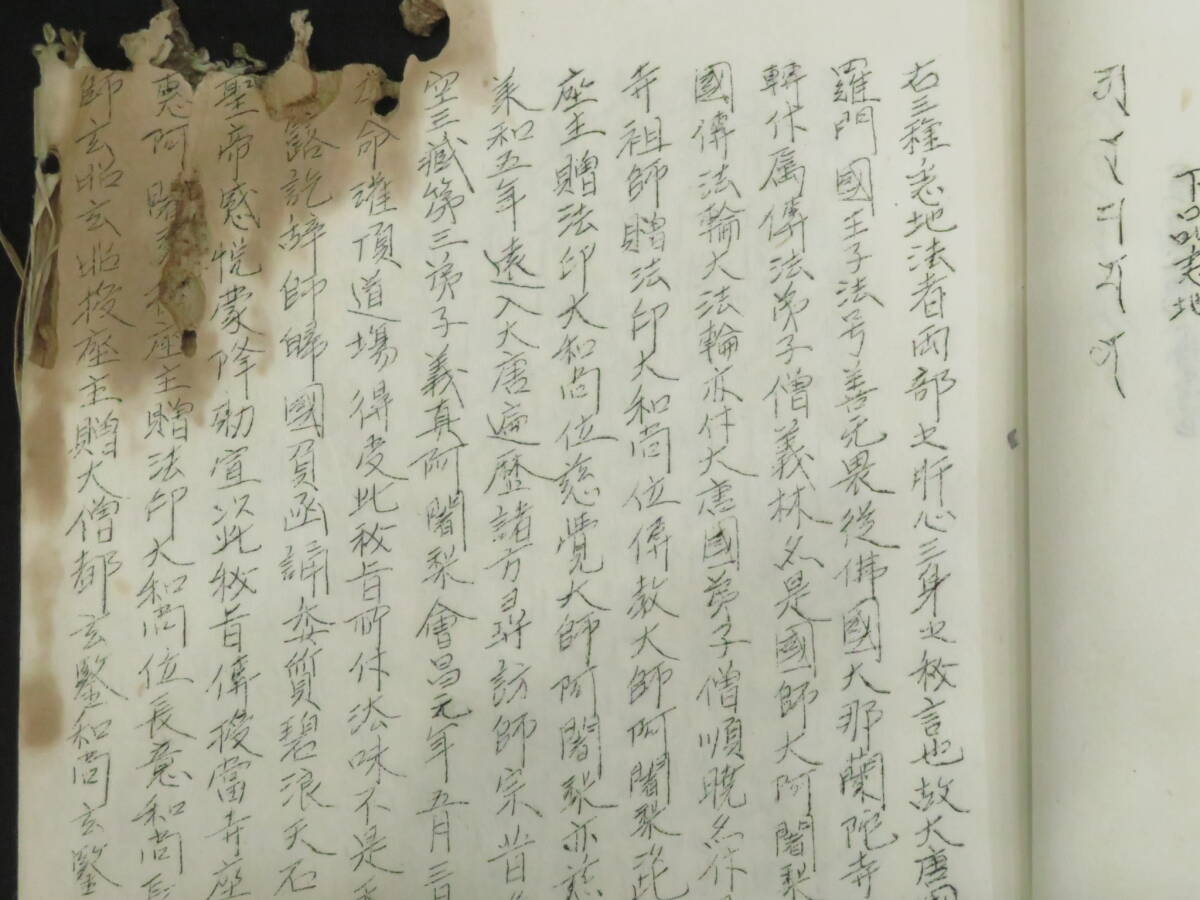 下品悉地
右三種悉地法者兩部之肝心三身之秘言也故大唐國
羅門國王子法号善无畏從佛國大那蘭陀寺
轉付属傳法弟子僧義林名是國師大阿闍梨
國傳法輪大法輪亦付大唐國弟子僧順曉
寺祖師贈法印大和尚位傳教大師阿闍梨
座主贈法印大和尚位慈覺大師阿闍梨亦慈
承和五年遠入大唐遍歷諸方尋訪師宗昔
空三藏第三弟子義真阿闍梨會昌元年五月三日
命灌頂道場得受此秘旨所付法味不是
詑辞師歸國負函誦委質碧浪天石
聖帝感悦蒙降勅宣以此秘旨傳授當寺座
座主贈法印大和尚位長意和尚
師玄昭玄昭授座主贈大僧都玄鑒和尚玄鑒